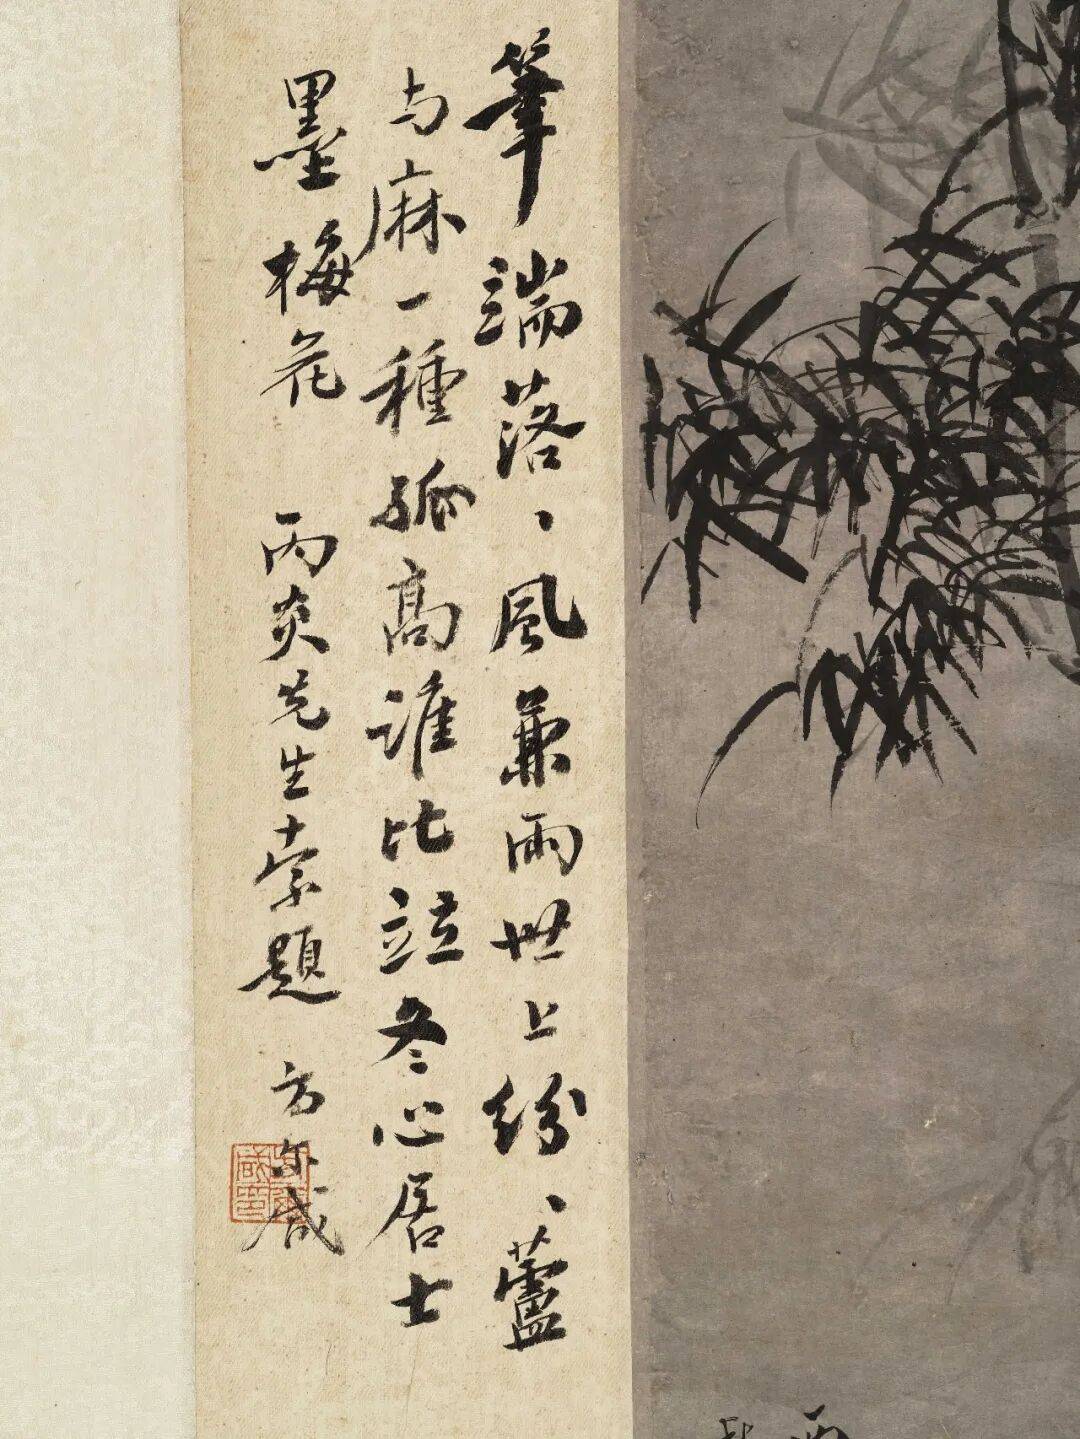 筆端落、風兼雨世上紛、蘆
与麻一種孤高誰比竝冬心居士
墨梅花 丙炎先生索題 方尔咸
雨